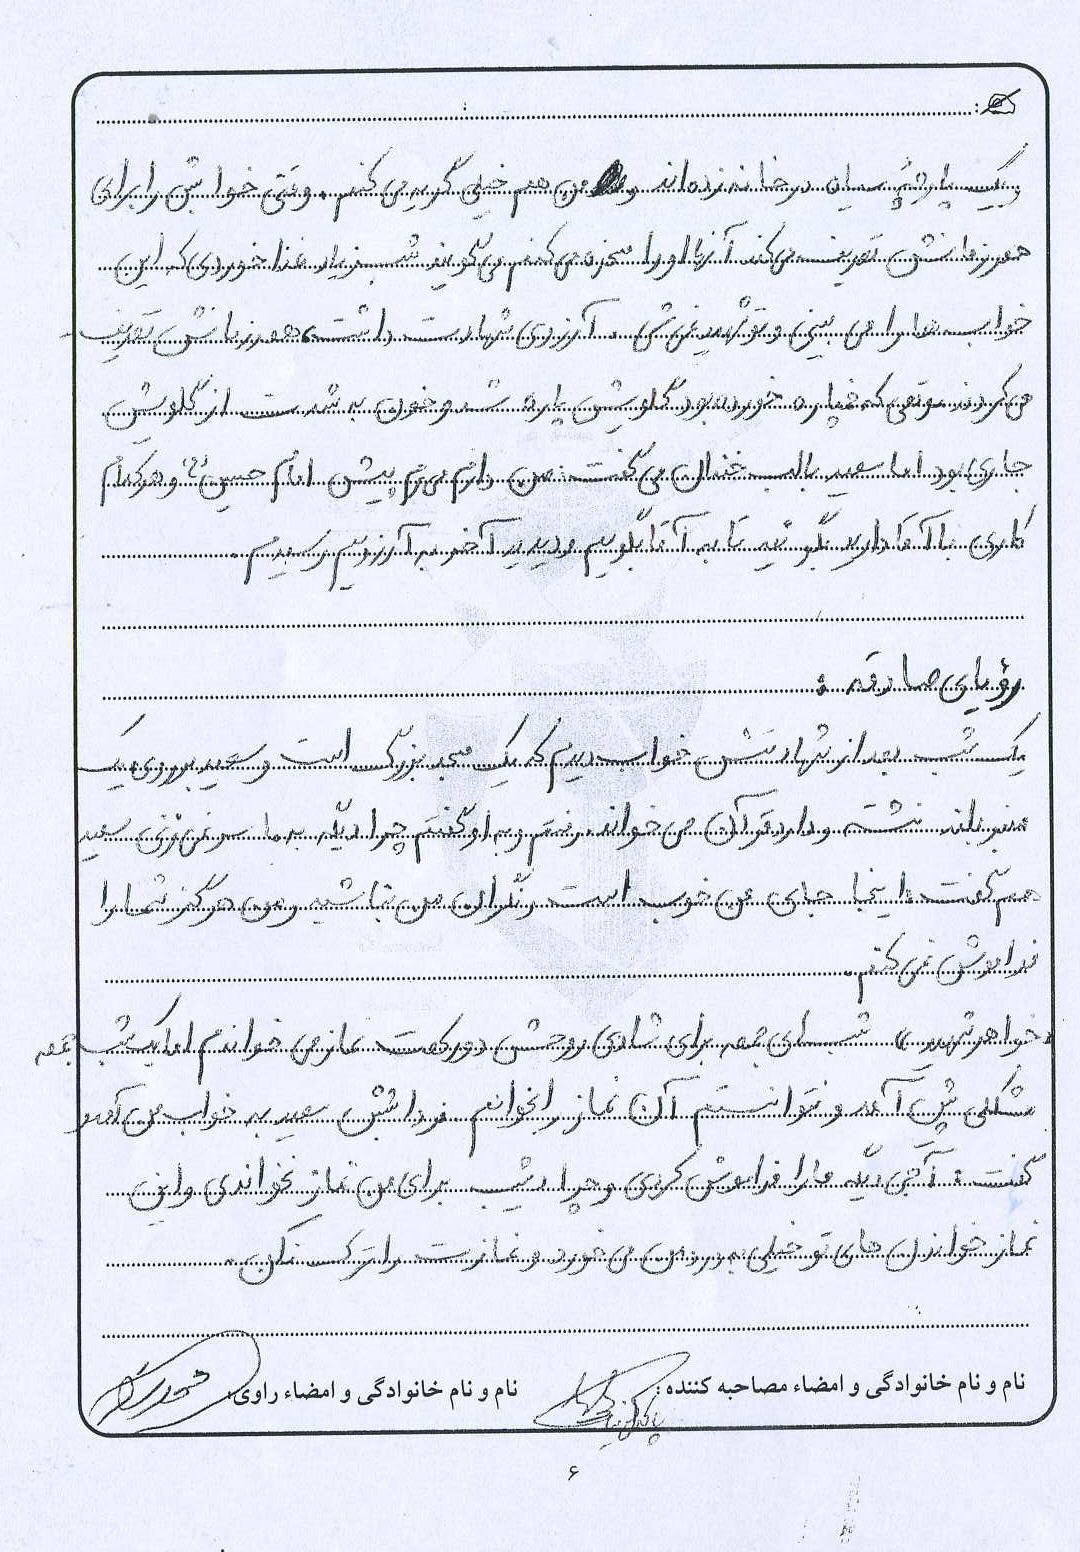 و یک پارچه سیاه در خانه زده‌اند و من هم خیلی گریه می کنم. وقتی خوابش را برای
همرزمانش تعریف می کند آنها او را مسخره می کنند می گویند شب زیاد غذا خوردی که این
خواب ها را می بینی و تو شهید نمی شی. آرزوی شهادت داشت، همرزمانش تعریف
می کردند موقعی که خمپاره خورده بود گلویش پاره شد و خون به شدت از گلویش
جاری بود اما سعید با لب خندان می گفت: من دارم می رم پیش امام حسین (ع) و هر کدام
کاری با آقا دارید بگوئید تا به آقا بگویم و دیدید آخر به آرزویم رسیدم.
رؤیای صادقه:
یک شب بعد از شهادتش خواب دیدم که یک مسجد بزرگ است و سعید بر روی یک
منبر بلند نشسته و دارد قرآن می خواند. رفتم و به او گفتم چرا دیگه به ما سر نمی زنی سعید
هم گفت: اینجا جای من خوب است و نگران من نباشید و من هرگز شما را
فراموش نمی کنم.
«خواهر شهید» شب های جمعه برای شادی روحش دو رکعت نماز می خواندم اما یک شب جمعه
مشکلی پیش آمد و نتوانستم آن نماز را بخوانم فردا شبش سعید به خواب من آمد و
گفت: آجی دیگه ما را فراموش کردی و چرا دیشب برای من نماز نخواندی و این
نماز خواندن های تو خیلی به درد من می خورد و نمازت را ترک نکن.
نام و نام خانوادگی و امضاء مصاحبه کننده: نام و نام خانوادگی و امضاء راوی:
۶